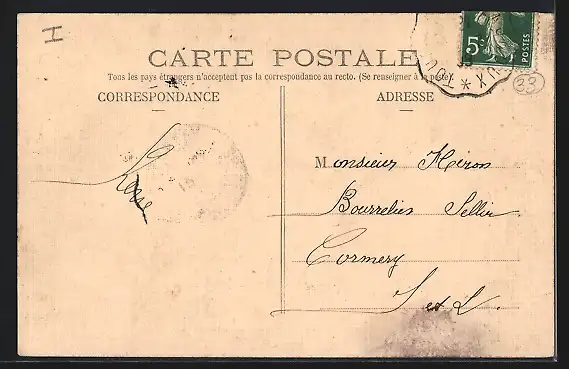 H
5c
POSTES
CARTE POSTALE
Tous les pays étrangers n'acceptent pas la correspondance au recto. (Se renseigner à la poste).
CORRESPONDANCE
ADRESSE
83
Monsieur Hiron
Bourrelier Sellier
Cormery
I et L.